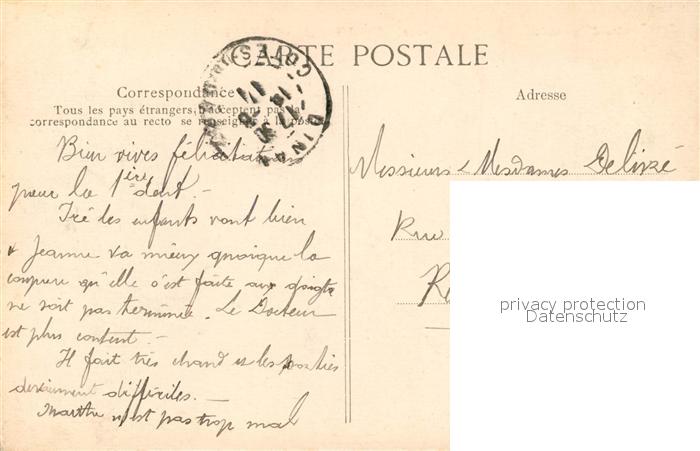 CARTE POSTALE
Correspondance
Tous les pays étrangers n'acceptent pas la
correspondance au recto se renseigner à la poste
Adresse
COTES-DU-NORD
DINAN
Bien vives félicitations
pour la 1ère dent. -
Ici les enfants vont bien
& Jeanne va mieux quoique la
coupure qu'elle s'est faite aux doigts
ne soit pas terminée. Le Docteur
est plus content. -
Il fait très chaud et les sorties
deviennent difficiles. -
Marthe n'est pas trop mal
Messieurs - Mesdames
Rue
privacy protection
Datenschutz